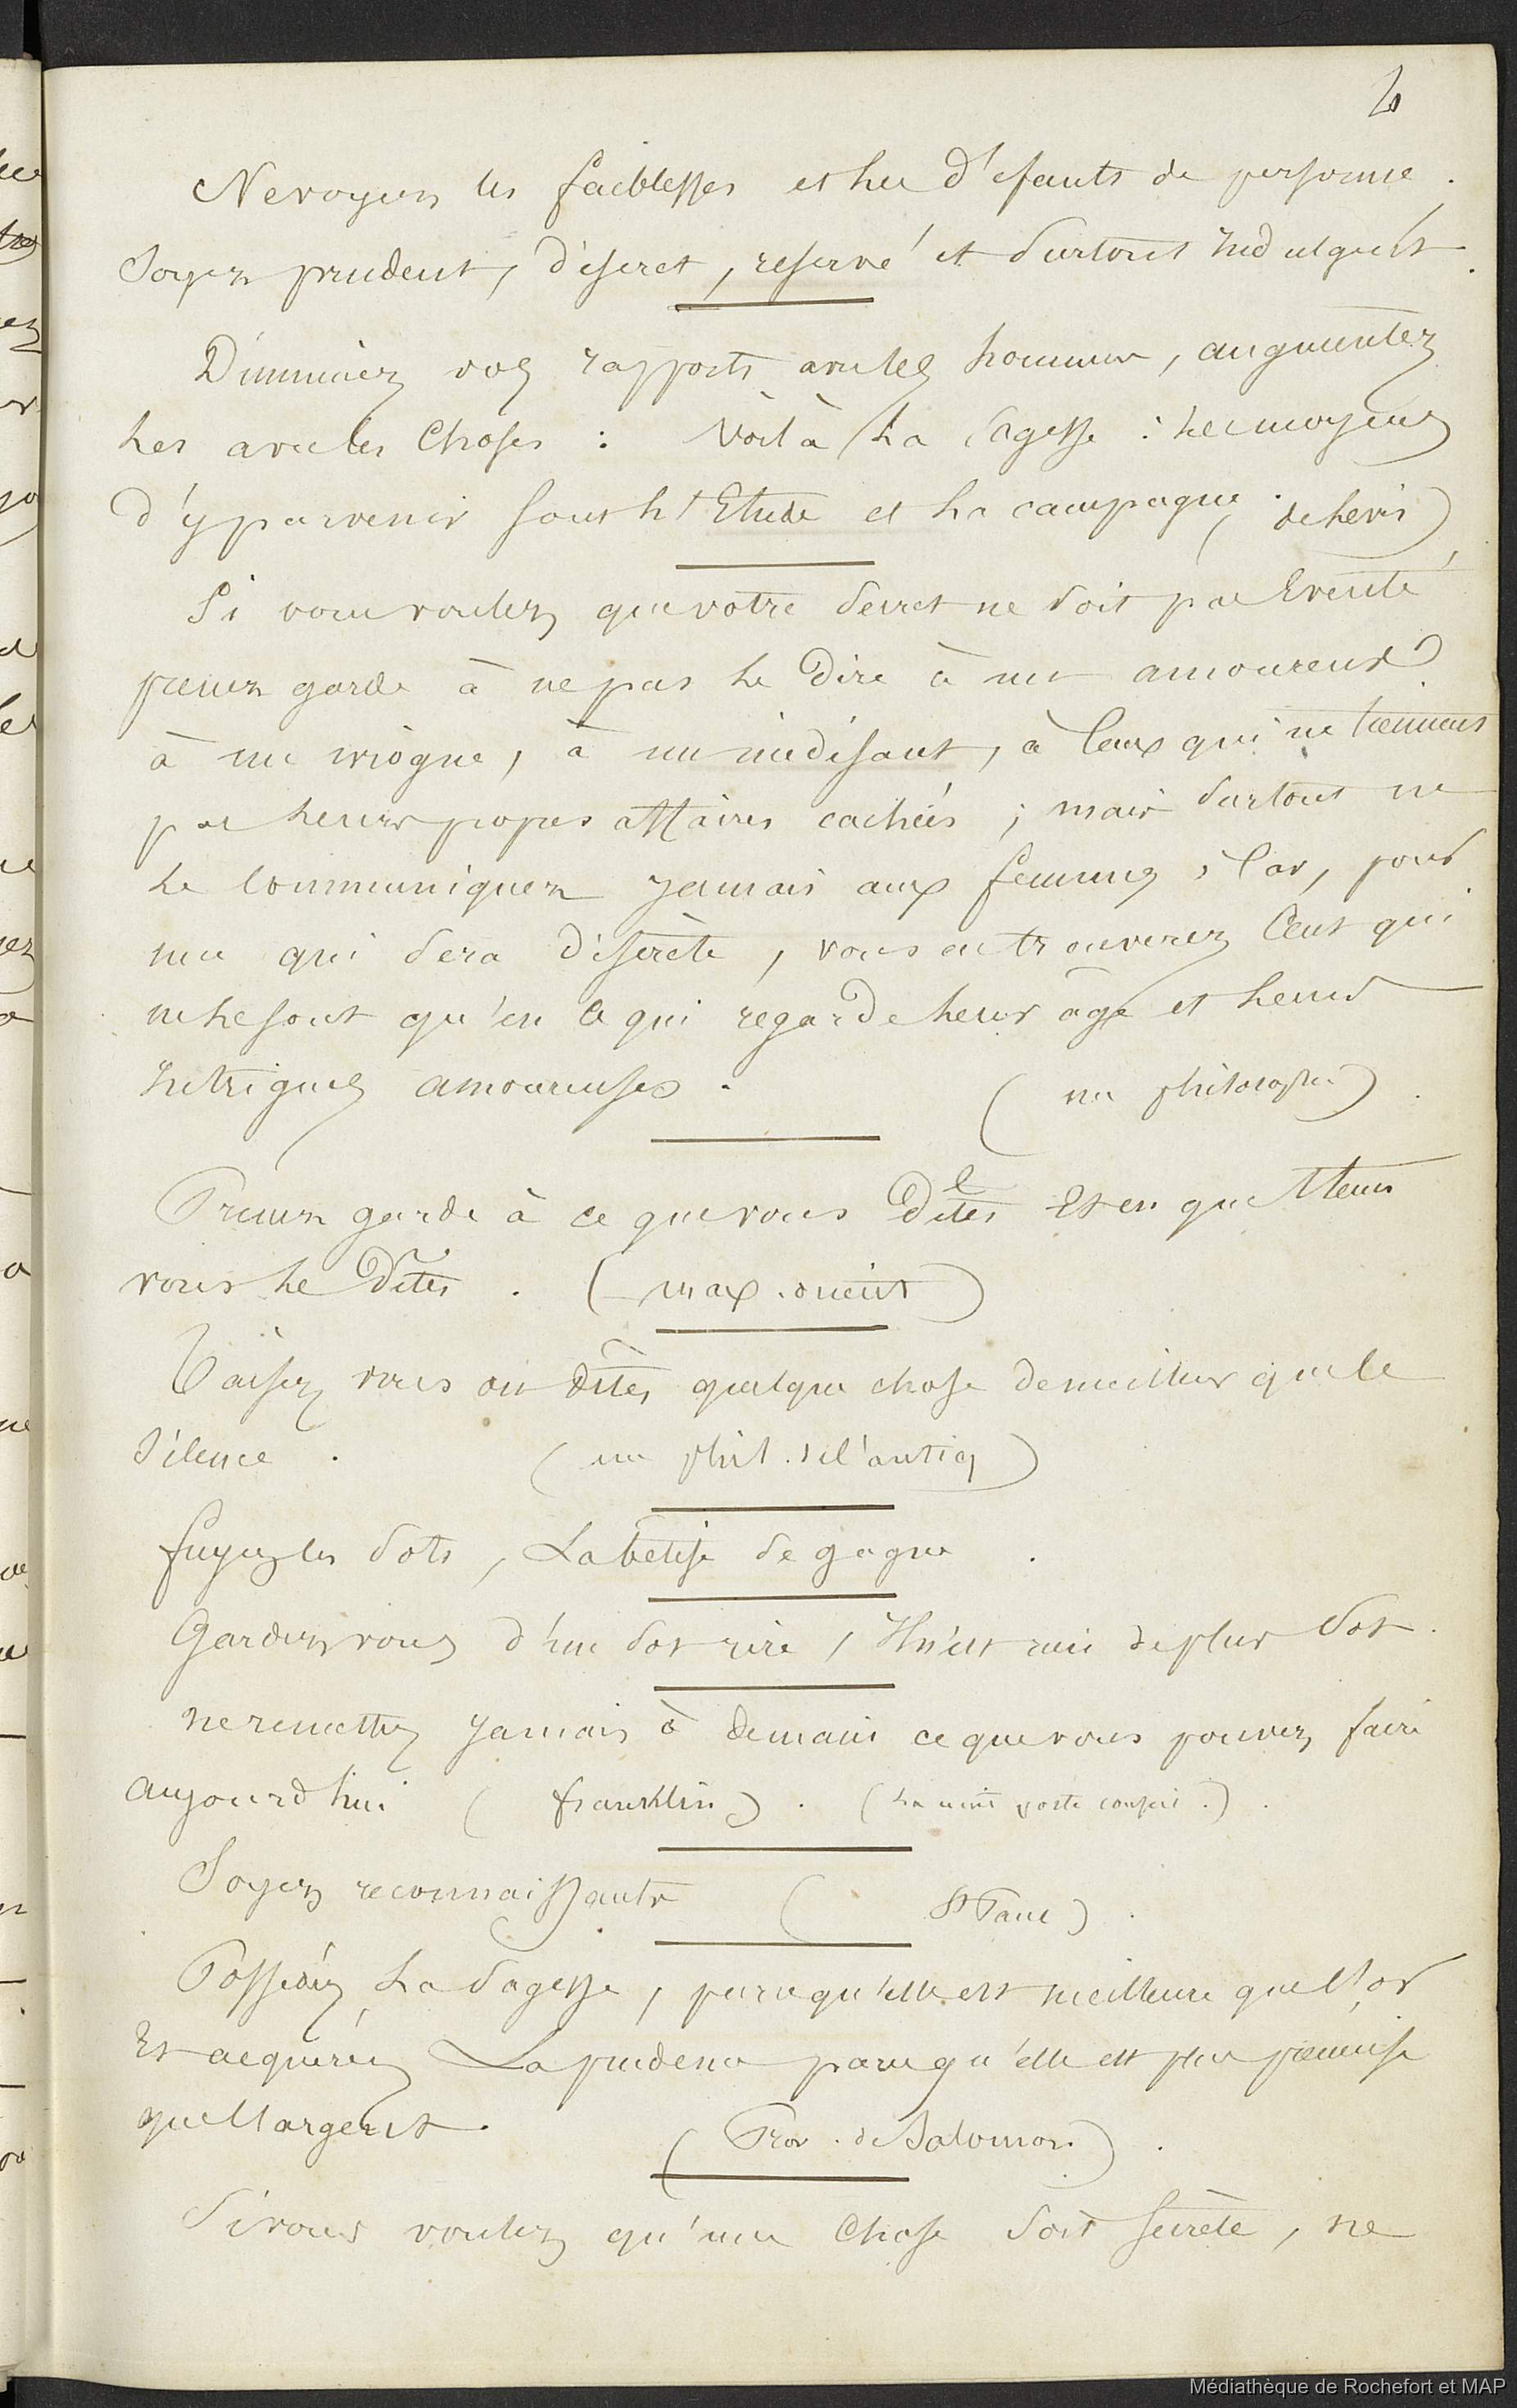 6
Ne voyez les faiblesses et les défauts de personne.
Soyez prudent, discret, reservé et surtout indulgent.
Diminuez vos rapports avec les hommes, augmentez
les avec les choses : voilà la sagesse : les moyens
d'y parvenir sont l'Etude et la campagne. (de Levis)
Si vous voulez que votre secret ne soit pas Eventé
prenez garde à ne pas le dire à un amoureux
à un ivrogne, à un médisant, à ceux qui ne tiennent
pas leurs propres affaires cachées ; mais surtout ne
le communiquez jamais aux femmes, car, pour
une qui sera discrète, vous en trouverez cent qui
ne le sont qu'en ce qui regarde leur âge et leurs
intrigues amoureuses. (un philosophe).
Prenez garde à ce que vous dites Et en quel tems
vous le dites. (max. orient)
Taisez vous ou dites quelque chose de meilleur que le
silence. (un phil. de l'antiq)
fuyez les sots, La bêtise se gagne.
Gardez vous d'un sot rire, Il n'est rien de plus sot.
ne remettez jamais à demain ce que vous pouvez faire
aujourd'hui (franklin). (La nuit porte conseil.).
Soyez reconnaissants (St Paul).
Possédez La sagesse, parcequ'elle est meilleure que l'or
Et acquérez La prudence parcequ'elle est plus précieuse
que l'argent. (Prov. de Salomon).
Si vous voulez qu'une chose soit secrète, ne
Médiathèque de Rochefort et MAP